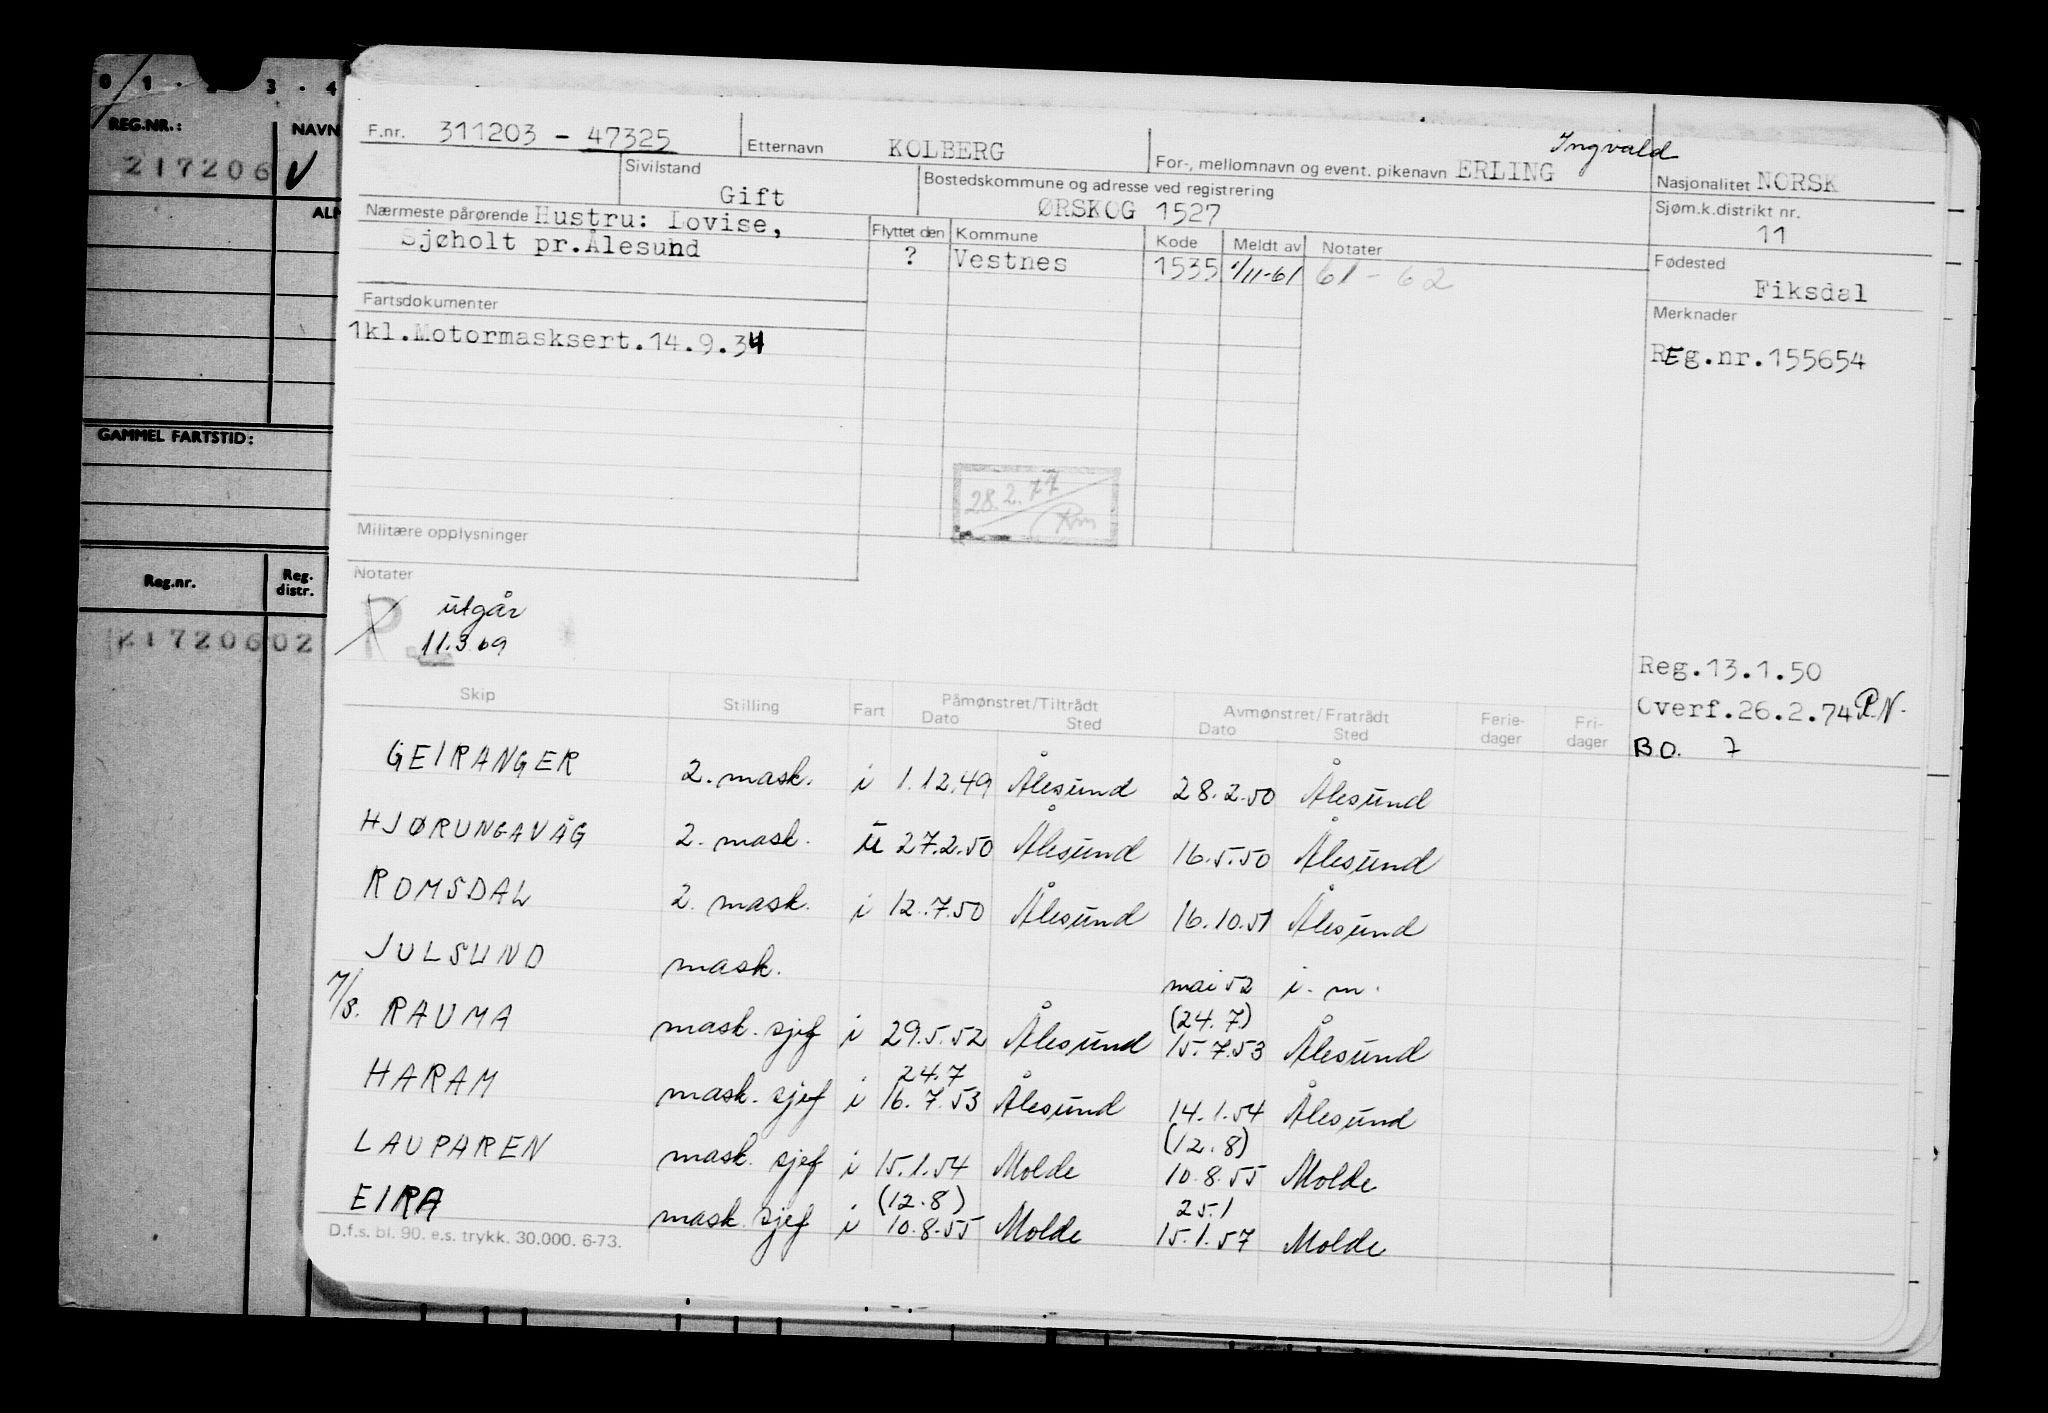 0 1 · 2 · 3 · 4
REG.NR.: NAVN
217206 V
GAMMEL FARTSTID:
Reg.nr. Reg. distr.
21720602
F.nr. 311203 - 47325 Etternavn KOLBERG For-, mellomnavn og event. pikenavn ERLING Ingvald
Nasjonalitet NORSK
Sivilstand Gift
Bostedskommune og adresse ved registrering ØRSKOG 1527
Sjøm.k.distrikt nr. 11
Nærmeste pårørende Hustru: Lovise,
Sjøholt pr.Ålesund
Flyttet den Kommune Kode Meldt av Notater
? Vestnes 1535 1/11-61 61-62
Fødested
Fiksdal
Fartsdokumenter
1kl.Motormasksert.14.9.34
Merknader
REg.nr.155654
28.2.77
Rm
Militære opplysninger
Notater
P utgår
11.3.69
Reg.13.1.50
Overf.26.2.74 P.N.
BO. 7
Skip Stilling Fart Påmønstret/Tiltrådt Dato Sted Avmønstret/Fratrådt Dato Sted Ferie-dager Fri-dager
GEIRANGER 2. mask. i 1.12.49 Ålesund 28.2.50 Ålesund
HJØRUNGAVÅG 2. mask. u 27.2.50 Ålesund 16.5.50 Ålesund
ROMSDAL 2. mask. i 12.7.50 Ålesund 16.10.51 Ålesund
JULSUND mask. mai 52 i. m.
M/S. RAUMA mask. sjef i 29.5.52 Ålesund (24.7) 15.7.53 Ålesund
HARAM mask. sjef i 24.7 16.7.53 Ålesund 14.1.54 Ålesund
LAUPAREN mask. sjef i 15.1.54 Molde (12.8) 10.8.55 Molde
EIRA mask. sjef i (12.8) 10.8.55 Molde 25.1 15.1.57 Molde
D.f.s. bl. 90. e.s. trykk. 30.000. 6-73.